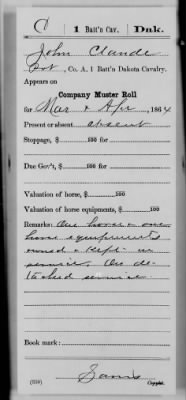 C 1 Batt'n Cav. Dak.
John Claude
Pvt, Co. A, 1 Batt'n Dakota Cavalry.
Appears on
Company Muster Roll
for Mar & Apr, 1864
Present or absent absent
Stoppage, $ 100 for
Due Gov't, $ 100 for
Valuation of horse, $ 100
Valuation of horse equipments, $ 100
Remarks: One horse & one
horse equipments
owned & kept in
service. On de-
tached service
Book mark:
(359) Copyist.